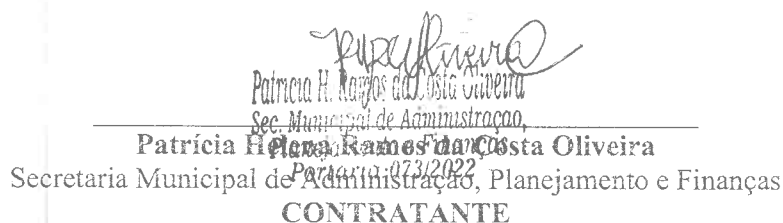 Patrícia H. Ramos da Costa Oliveira
Sec. Municipal de Administração,
Planejamento e Finanças
Portaria 073/2022
Patrícia Helena Ramos da Costa Oliveira
Secretaria Municipal de Administração, Planejamento e Finanças
CONTRATANTE